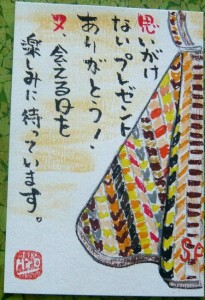 思いがけ
ないプレゼント
ありがとう！
又、会える日を
楽しみに待っています。